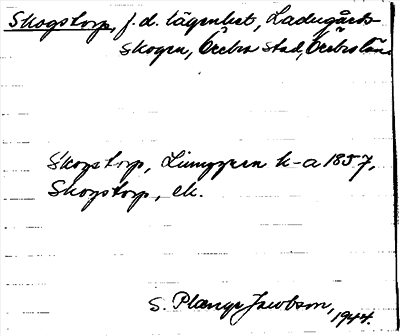 Skogstorp, f.d. lägenhet, Ladugårds-
skogen, Örebro stad, Örebro län.
Skogstorp, k-a 1857,
Skogstorp, ek.
S. Jacobson,
1944.